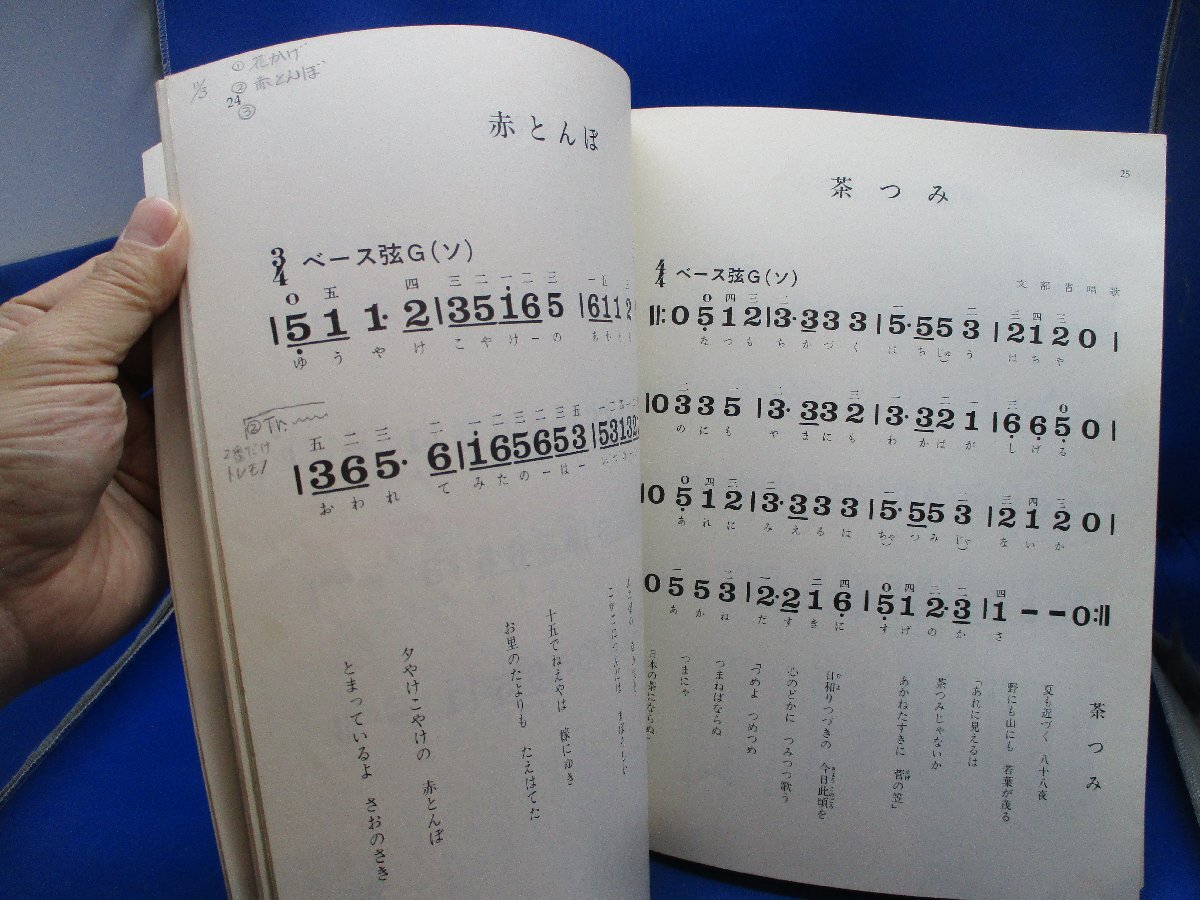 ① 花かげ
② 赤とんぼ
③
24
赤とんぼ
3/4 ベース弦G(ソ)
0 五 四 三 二 一 二 三
|5 1 1・2|3 5 1 6 5 |6 1 1 2
ゆ う や け こ や け ー の
②Tr.
2番だけ
トレモノ
五 二 三 二 一 二 三 二 三 五
|3 6 5・ 6|1 6 5 6 5 3|5 3 1 3 2
お わ れ て み た の ー は ー
十五でねえやは 嫁にゆき
お里のたよりも たえはてた
夕やけこやけの 赤とんぼ
とまっているよ さおのさき
25
茶つみ
4/4 ベース弦G(ソ)
文部省唱歌
||:0 5 1 2|3・3 3 3|5・5 5 3|2 1 2 0|
な つ も ち か づ く は ち じゅう は ち や
|0 3 3 5|3・3 3 2|3・3 2 1|6 6 5 0|
の に も や ま に も わ か ば が し げ る
|0 5 1 2|3・3 3 3|5・5 5 3|2 1 2 0|
あ れ に み え る は ちゃ つ み じゃ な い か
0 5 5 3|2・2 1 6|5 1 2・3|1 ー ー 0:||
あ か ね だ す き に す げ の か さ
茶つみ
夏も近づく 八十八夜
野にも山にも 若葉が茂る
「あれに見えるは
茶つみじゃないか
あかねたすきに 菅の笠」
日和りつづきの 今日此頃を
心のどかに つみつつ歌う
「つめよ つめつめ
つまねばならぬ
つまにゃ
日本の茶にならぬ」